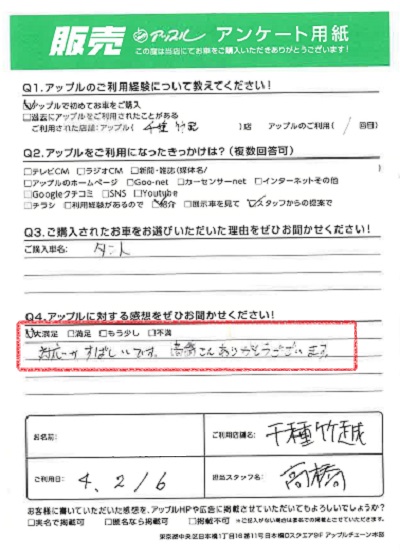 販売 アップル アンケート用紙
この度は当店にてお車をご購入いただきありがとうございます!
Q1.アップルのご利用経験について教えてください!
☑アップルで初めてお車をご購入
□過去にアップルをご利用されたことがある
ご利用された店舗:アップル( 千種竹越 )店 アップルのご利用( / 回目)
Q2.アップルをご利用になったきっかけは?(複数回答可)
□テレビCM □ラジオCM □新聞・雑誌(媒体名/ )
□アップルのホームページ □Goo-net □カーセンサーnet □インターネットその他
□Googleクチコミ □SNS □Youtube
□チラシ □利用経験があるので ☑紹介 □展示車を見て ☑スタッフからの提案で
Q3.ご購入されたお車をお選びいただいた理由をぜひお聞かせください!
ご購入車名: タント
Q4.アップルに対する感想をぜひお聞かせください!
☑大満足 □満足 □もう少し □不満
対応がすばしいです。高橋さんありがとうございます
お名前:
ご利用店舗名: 千種竹越
ご利用日: 4. 2/6
担当スタッフ名: 高橋
お客様に書いていただいた感想を、アップルHPや広告に掲載させていただいてもよろしいでしょうか?
□実名で掲載可 □匿名なら掲載可 □掲載不可 ※ご記入がない場合は匿名での掲載とさせていただきます。
東京都中央区日本橋1丁目16番11号日本橋Dスクエア9F アップルチェーン本部